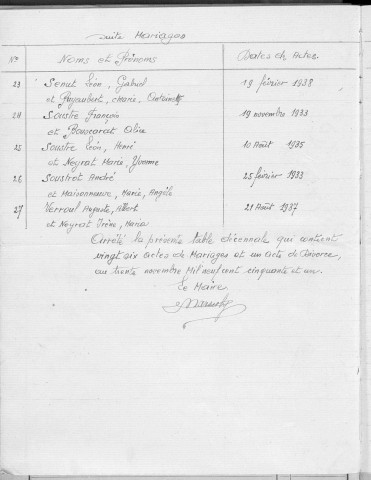 suite Mariages
Nos Noms et Prénoms Dates des Actes
23 Senut Léon, Gabriel 19 février 1938
et Pujaubert, Marie, Antoinette
24 Soustre François 19 novembre 1933
et Bouscarat Alice
25 Soustre Léon, René 10 Août 1935
et Neyrat Marie, Yvonne
26 Soustrot André 25 février 1933
et Maisonneuve, Marie, Angèle
27 Verroul Auguste, Albert 21 Août 1937
et Neyrat Irène, Maria
Arrêté la présente table décennale qui contient
vingt six actes de Mariages et un acte de Divorce,
au trente novembre Mil neuf cent cinquante et un.
Le Maire